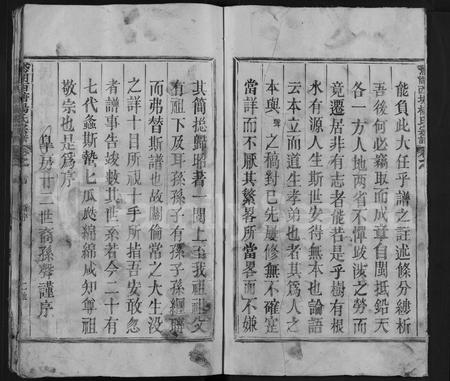 能負此大任乎譜之註述條分縷析
吾後何必竊取而成章自閩抵鉛天
各一方人地兩省不憚跋涉之勞而
竟遷居非有志者能若是乎樹有根
水有源人生斯世安得無本也論語
云本立而道生孝弟也者其為人之
本與 之稿對已先屢修無不確實
當詳而不厭其繁畧所當畧而不嫌
其簡 歸昭著一開上至我祖祖父
有祖下及耳孫孫子有孫子孫 聯
而弗替斯譜也故關倫常之大生沒
之詳十目所視十手所指吾安敢忽
者譜事告竣數其世系若今二十有
七代螽斯蟄七瓜瓞綿綿咸知尊祖
敬宗也是為序
 房廿二世裔孫 謹序